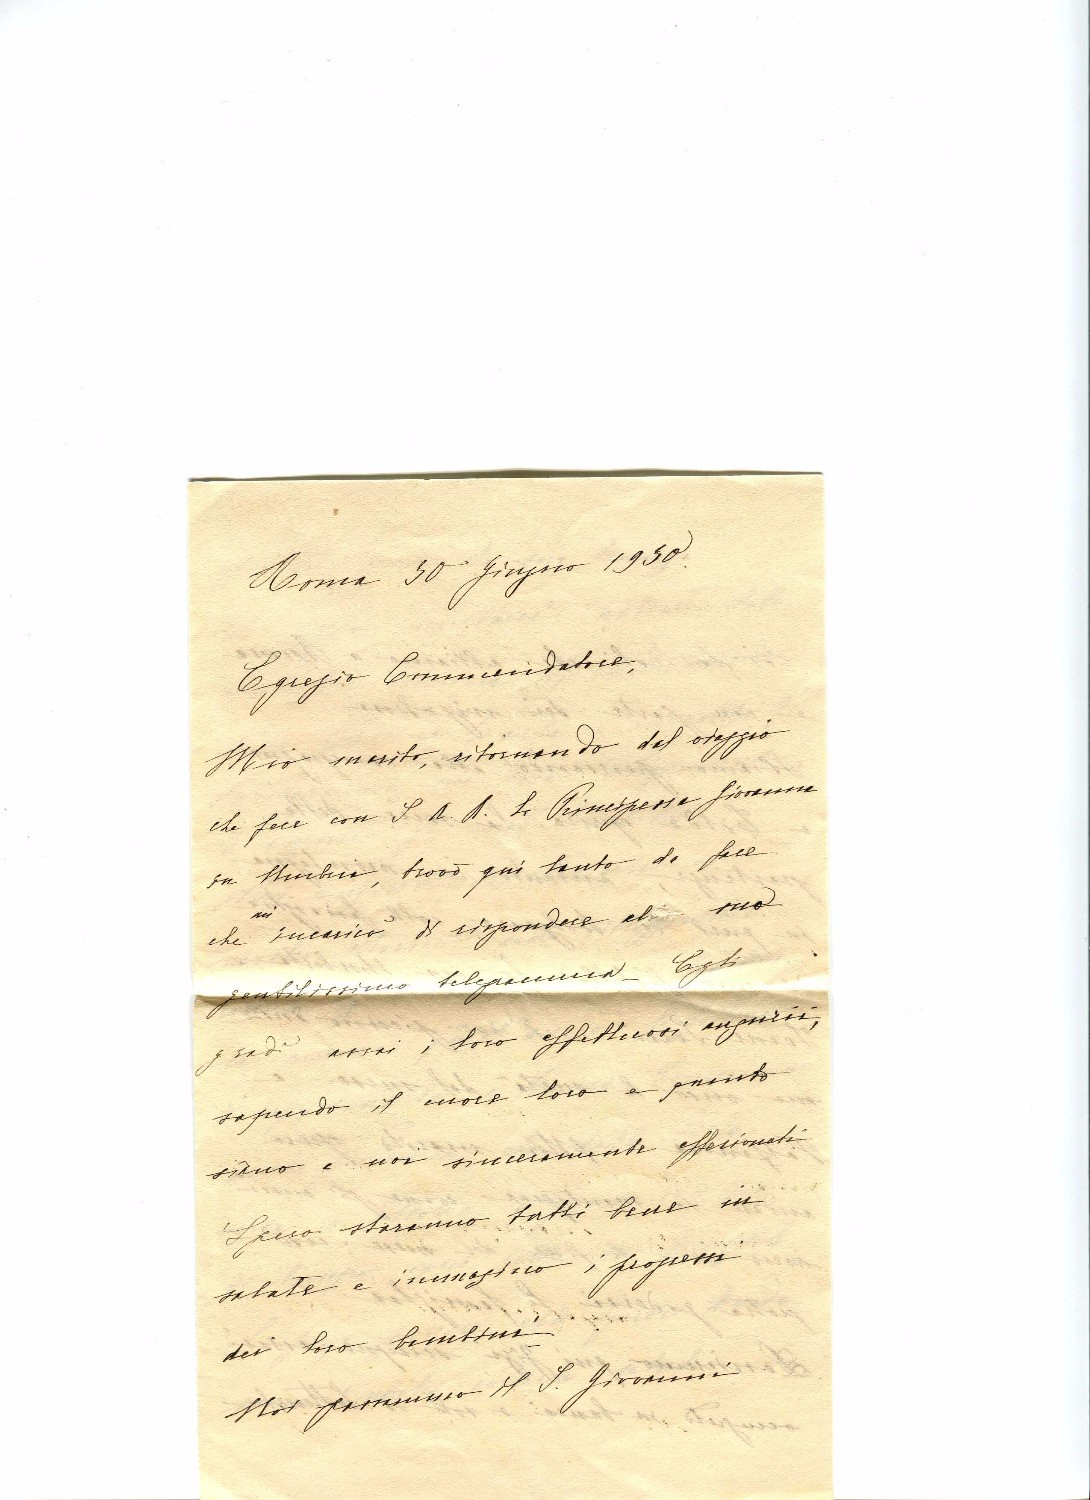 Roma 30 Giugno 1930.
Egregio Commendatore,
Mio marito, ritornando dal viaggio
che fece con S. A. R. la Principessa Giovanna
in Umbria, trovò qui tanto da fare
che mi incaricò di rispondere al suo
gentilissimo telegramma_ Egli
gradì assai i loro affettuosi augurii,
sapendo il cuore loro e quanto
siano a noi sinceramente affezionati
Spero staranno tutti bene in
salute e immagino i progressi
dei loro bambini
Noi passammo il S. Giovanni